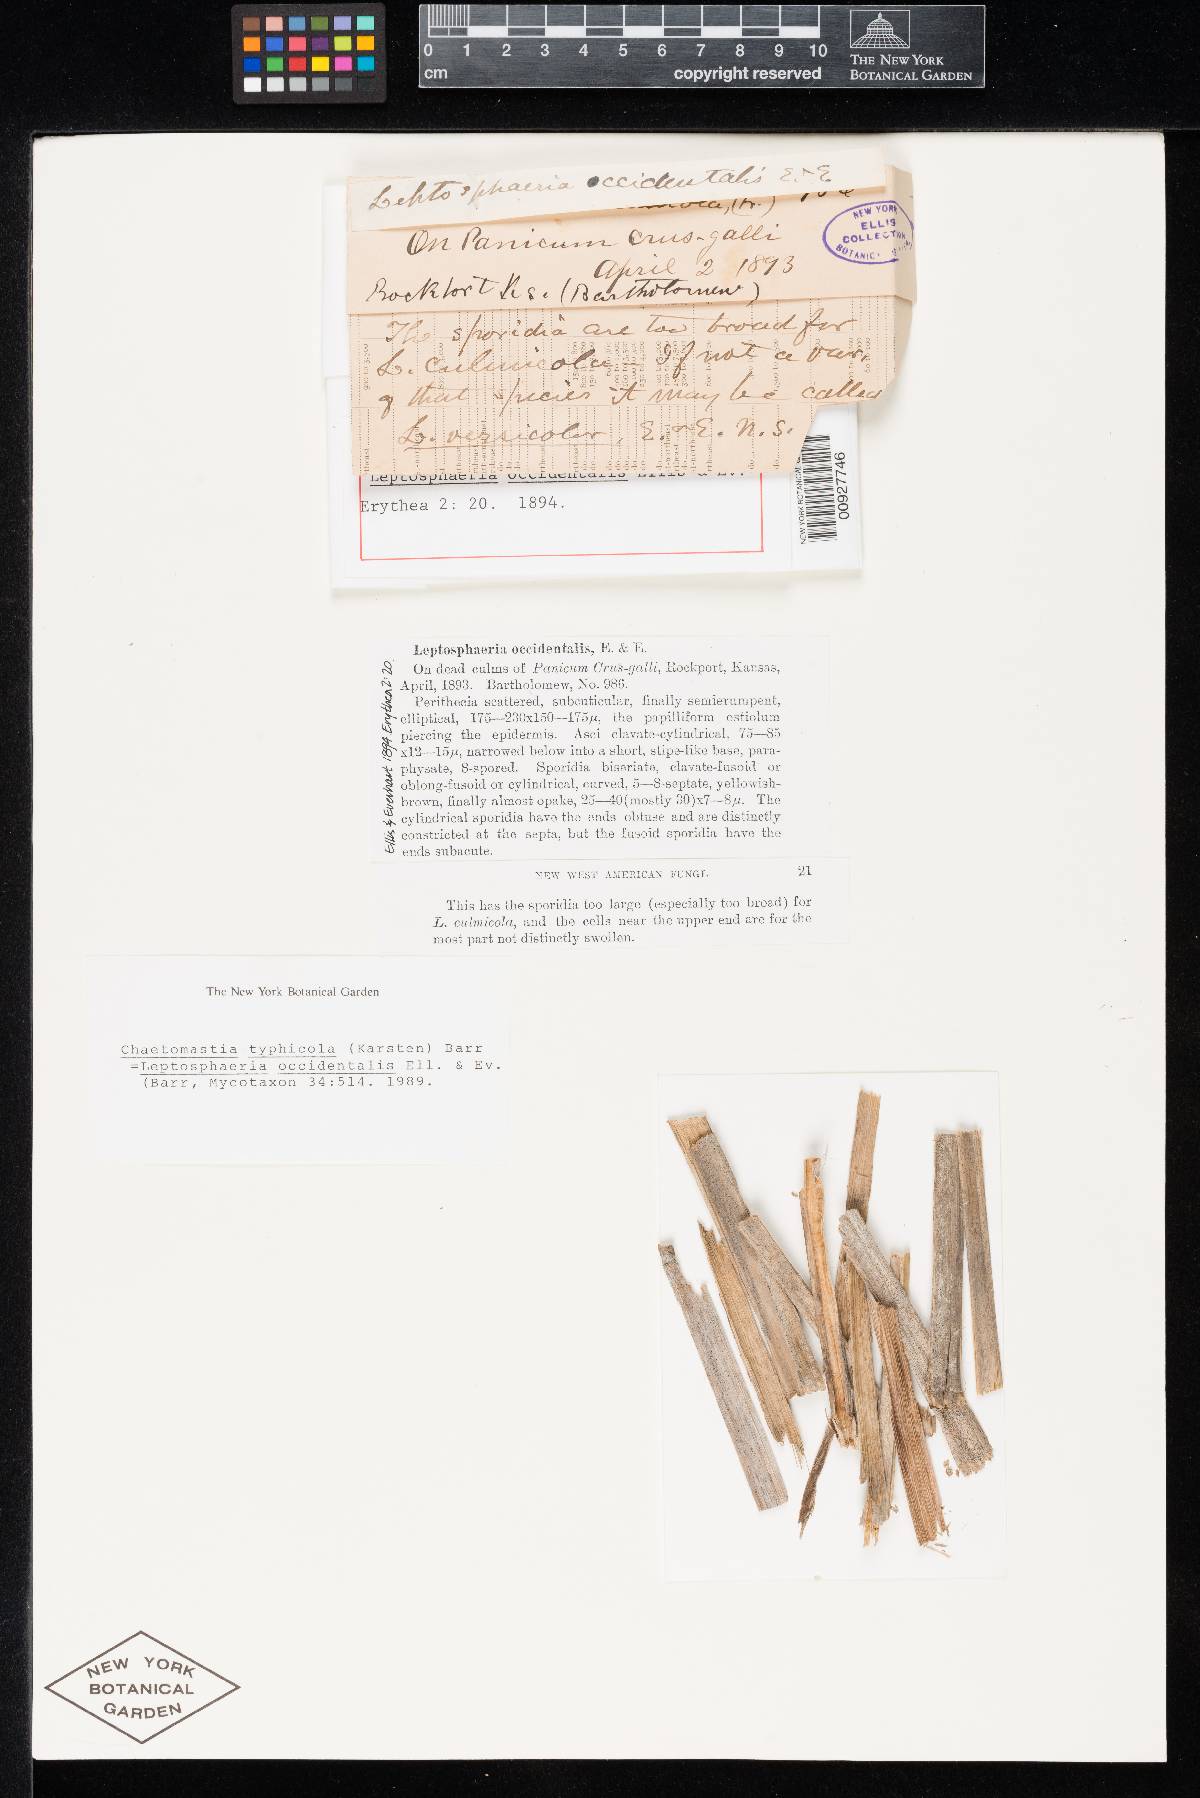 0 1 2 3 4 5 6 7 8 9 10
cm
copyright reserved
THE NEW YORK
BOTANICAL GARDEN
Leptosphaeria occidentalis E. & E
On Panicum crus-galli
April 2 1893
Rockport Ks. (Bartholomew)
NEW YORK
ELLIS
COLLECTION
BOTANIC
The sporidia are too broad for
L. culmicola – If not a var.
of that species it may be called
L. versicolor, E. & E. N. S.
Leptosphaeria occidentalis Ellis & Ev.
Erythea 2: 20. 1894.
NEW YORK BOTANICAL
00927746
Leptosphaeria occidentalis, E. & E.
On dead culms of Panicum Crus-galli, Rockport, Kansas,
April, 1893. Bartholomew, No. 986.
Perithecia scattered, subcuticular, finally semierumpent,
elliptical, 175—230x150—175µ, the papilliform ostiolum
piercing the epidermis. Asci clavate-cylindrical, 75—85
x12—15µ, narrowed below into a short, stipe-like base, para-
physate, 8-spored. Sporidia biseriate, clavate-fusoid or
oblong-fusoid or cylindrical, curved, 5—8-septate, yellowish-
brown, finally almost opake, 25—40(mostly 30)x7—8µ. The
cylindrical sporidia have the ends obtuse and are distinctly
constricted at the septa, but the fusoid sporidia have the
ends subacute.
Ellis & Everhart 1894 Erythea 2: 20.
NEW WEST AMERICAN FUNGI. 21
This has the sporidia too large (especially too broad) for
L. culmicola, and the cells near the upper end are for the
most part not distinctly swollen.
The New York Botanical Garden
Chaetomastia typhicola (Karsten) Barr
=Leptosphaeria occidentalis Ell. & Ev.
(Barr, Mycotaxon 34:514. 1989.
NEW YORK
BOTANICAL
GARDEN